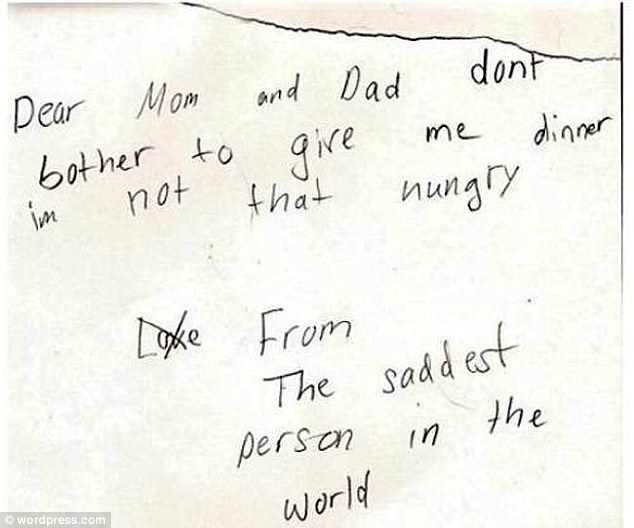 Dear Mom and Dad dont
bother to give me dinner
im not that hungry
Love From
The saddest
person in the
world
© wordpress.com